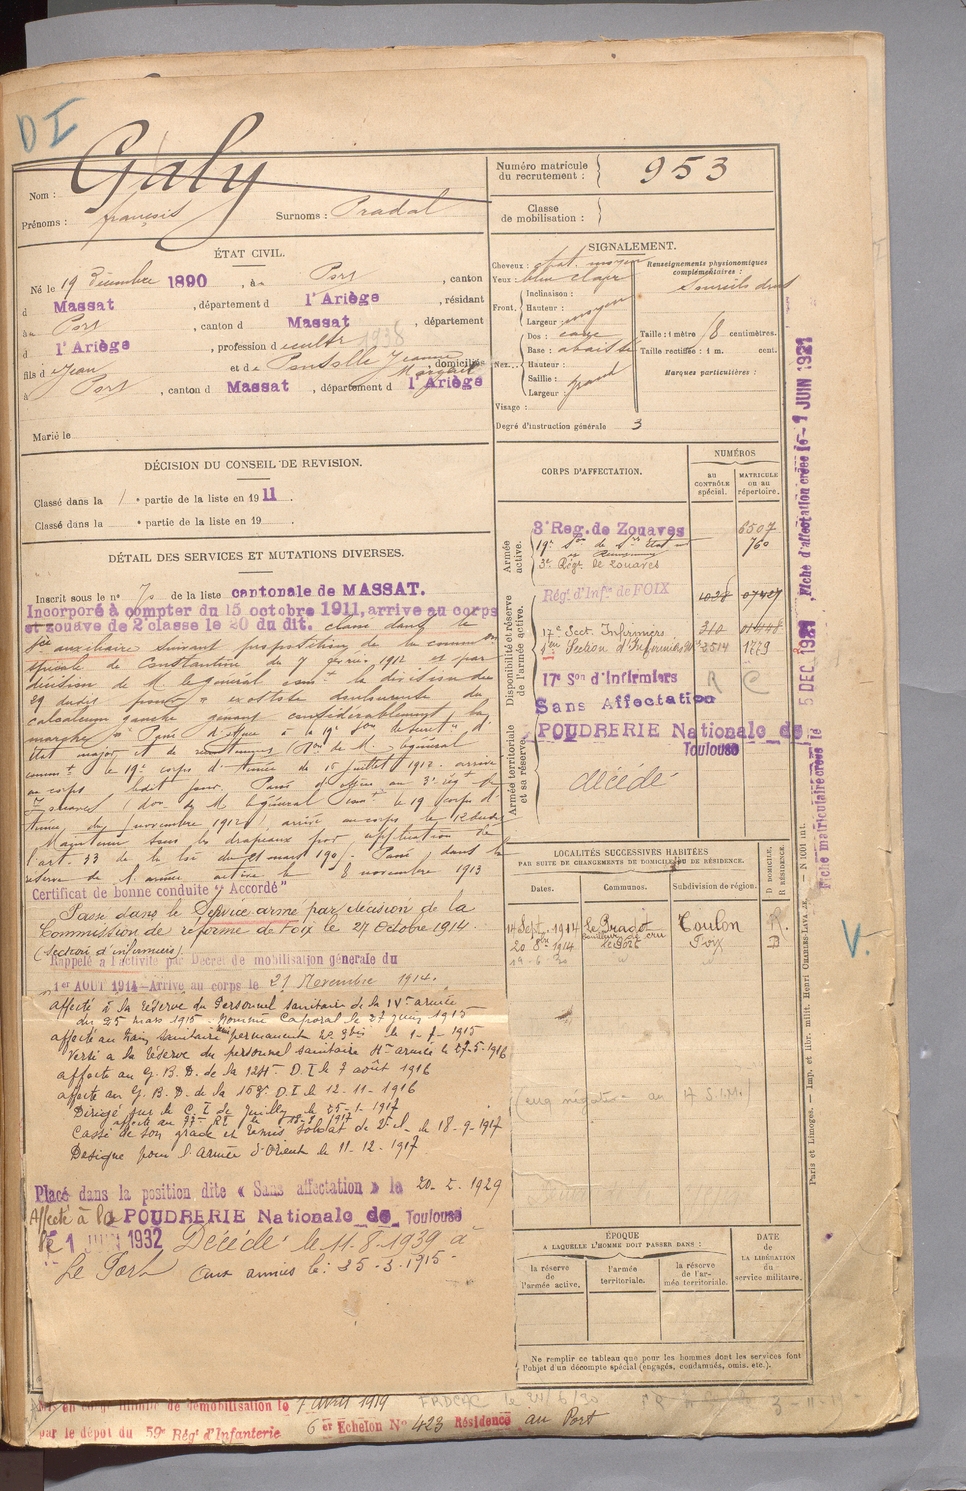 DI
Galy
Nom :
Prénoms : françois Surnoms : Pradal
Numéro matricule du recrutement : 953
Classe de mobilisation :
ÉTAT CIVIL.
Né le 19 Décembre 1890, à Port, canton
d Massat, département d l'Ariège, résidant
à Port, canton d Massat, département
d l'Ariège, profession de cultr 1938
fils d Jean et de Jeanne, domiciliés
à Port, canton d Massat, département d l'Ariège
Marié le
SIGNALEMENT.
Cheveux : chat. moyen
Yeux : bleu clair
Front. Inclinaison :
Hauteur :
Largeur : moyen
Nez... Dos : cave
Base : abaissée
Hauteur :
Saillie : grand
Largeur :
Visage :
Degré d'instruction générale 3
Renseignements physionomiques complémentaires :
Sourcils droits
Taille : 1 mètre centimètres.
Taille rectifiée : 1 m. cent.
Marques particulières :
DÉCISION DU CONSEIL DE REVISION.
Classé dans la 1 e partie de la liste en 1911.
Classé dans la e partie de la liste en 19
DÉTAIL DES SERVICES ET MUTATIONS DIVERSES.
Inscrit sous le n° 70 de la liste cantonale de MASSAT.
Incorporé à compter du 15 octobre 1911, arrive au corps
et zouave de 2e classe le 20 du dit. classé dans le
Sce auxiliaire suivant proposition de la commion
spéciale de Constantine du 7 février 1912 et par
décision de M. le général comt la division du
29 dudit pour " exostose douloureuse du
calcaneum gauche génant considérablement la
marche "
état major et de recrutement (Don de M. le général
commt le 19e corps d'Armée du 15 juillet 1912. arrive
au corps ledit jour. Passé d'office au 3e régt de
zouaves (don de M. le général Comt le 19 corps d'
Armée du novembre 1912) arrivé au corps le 12 dudit
Maintenu sous les drapeaux par application de
l'art. 33 de la loi du 21 mars 190 . Passé dans la
réserve de l'armée active le 8 novembre 1913
Certificat de bonne conduite "Accordé"
Passé dans le Service armé par décision de la
Commission de réforme de Foix le 27 Octobre 1914.
(Section d'infirmiers)
Rappelé à l'activité par Décret de mobilisation générale du
1er AOUT 1914 – Arrive au corps le 21 Novembre 1914.
affecté à la réserve du Personnel sanitaire de la IVe armée
du 25 mars 1915. Nommé Caporal le 27 juin 1915
affecté au train sanitaire permanent le 1-7-1915
Versé a la réserve du personnel sanitaire Ae armée le 27-5-1916
affecté au G. B. D. de la 124e D. I le 7 août 1916
affecté au G. B. D. de la 158e D. I le 12-11-1916
Dirigé sur le C. I de Juilly le 25-1-1917
Cassé de son grade et remis soldat de 2e cl. le 18-9-1917
Désigné pour l'Armée d'Orient le 11-12-1917
Placé dans la position dite « Sans affectation » le 20-5-1929
Affecté à la POUDRERIE Nationale de Toulouse
le 1 JUIN 1932 Décédé le 11-8-1939 à
Le Port aux armées le : 25-3-1915
Mis en congé illimité de démobilisation le 7 avril 1919
par le dépot du 59e Régt d'Infanterie 6 er Echelon N° 423 Résidence au Port
CORPS D'AFFECTATION.
NUMÉROS
AU CONTRÔLE spécial.
MATRICULE ou au répertoire.
Armée active.
3e Reg. de Zouaves 6507
19e Son de Sres Etat 760
3e Régt de zouaves
Disponibilité et réserve de l'armée active.
Régt d'Infie de FOIX 1028 07407
17e Sect. Infirmiers 310
Section d'Infirmiers 2514 1773
17e Son d'Infirmiers R C
Sans Affectation
Armée territoriale et sa réserve.
POUDRERIE Nationale de Toulouse
décédé
LOCALITÉS SUCCESSIVES HABITÉES
PAR SUITE DE CHANGEMENTS DE DOMICILE OU DE RÉSIDENCE.
Dates. Communes. Subdivision de région. D DOMICILE. R RÉSIDENCE.
14 Sept. 1914 Le Pradet Toulon R.
20 8bre 1914 Le Port Foix D
19-6-20
ÉPOQUE
A LAQUELLE L'HOMME DOIT PASSER DANS :
la réserve de l'armée active. l'armée territoriale. la réserve de l'armée territoriale.
DATE de LA LIBÉRATION du service militaire.
Ne remplir ce tableau que pour les hommes dont les services font
l'objet d'un décompte spécial (engagés, condamnés, omis, etc.).
Fiche d'affectation créée le - 1 JUIN 1921
Fiche matriculaire créée le 5 DEC. 1921
V.
Paris et Limoges. — Imp. et libr. milit. Henri CHARLES-LAVAUZELLE. — N 1001 int.